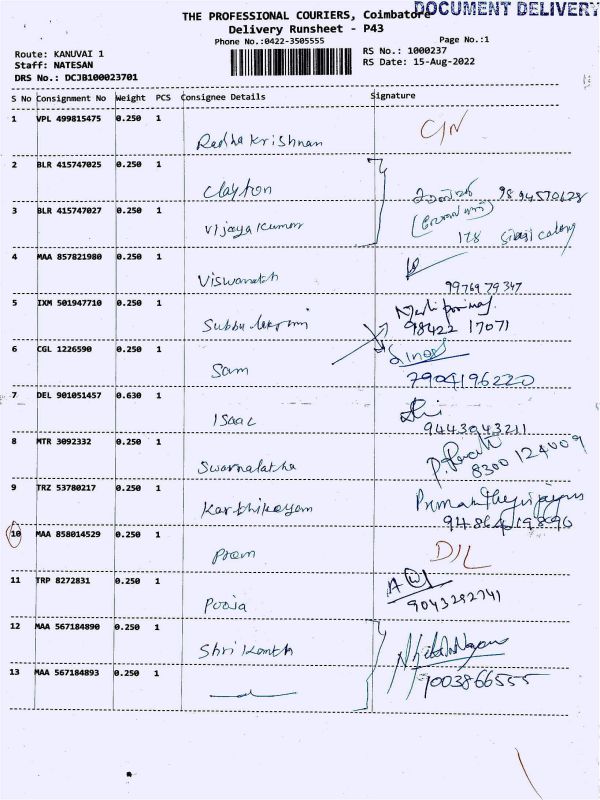 DOCUMENT DELIVERY
THE PROFESSIONAL COURIERS, Coimbatore
Delivery Runsheet - P43
Phone No.:0422-3505555 Page No.:1
Route: KANUVAI 1 RS No.: 1000237
Staff: NATESAN RS Date: 15-Aug-2022
DRS No.: DCJB100023701
S No Consignment No Weight PCS Consignee Details Signature
1 VPL 499815475 0.250 1 Radha Krishnan C/N
2 BLR 415747025 0.250 1 Clayton 9894570628
3 BLR 415747027 0.250 1 Vijaya Kumar 178
4 MAA 857821980 0.250 1 Viswanath 9976979347
5 IXM 501947710 0.250 1 Subbu lakshmi 98422 17071
6 CGL 1226590 0.250 1 Sam 7904196220
7 DEL 901051457 0.630 1 Isaac 9443943211
8 MTR 3092332 0.250 1 Swarnalatha 8300 124009
9 TRZ 53780217 0.250 1 Karthikeyan
10 MAA 858014529 0.250 1 Prem D/L
11 TRP 8272831 0.250 1 Pooja 9043282741
12 MAA 567184890 0.250 1 Shri Kanth
13 MAA 567184893 0.250 1 7003866555